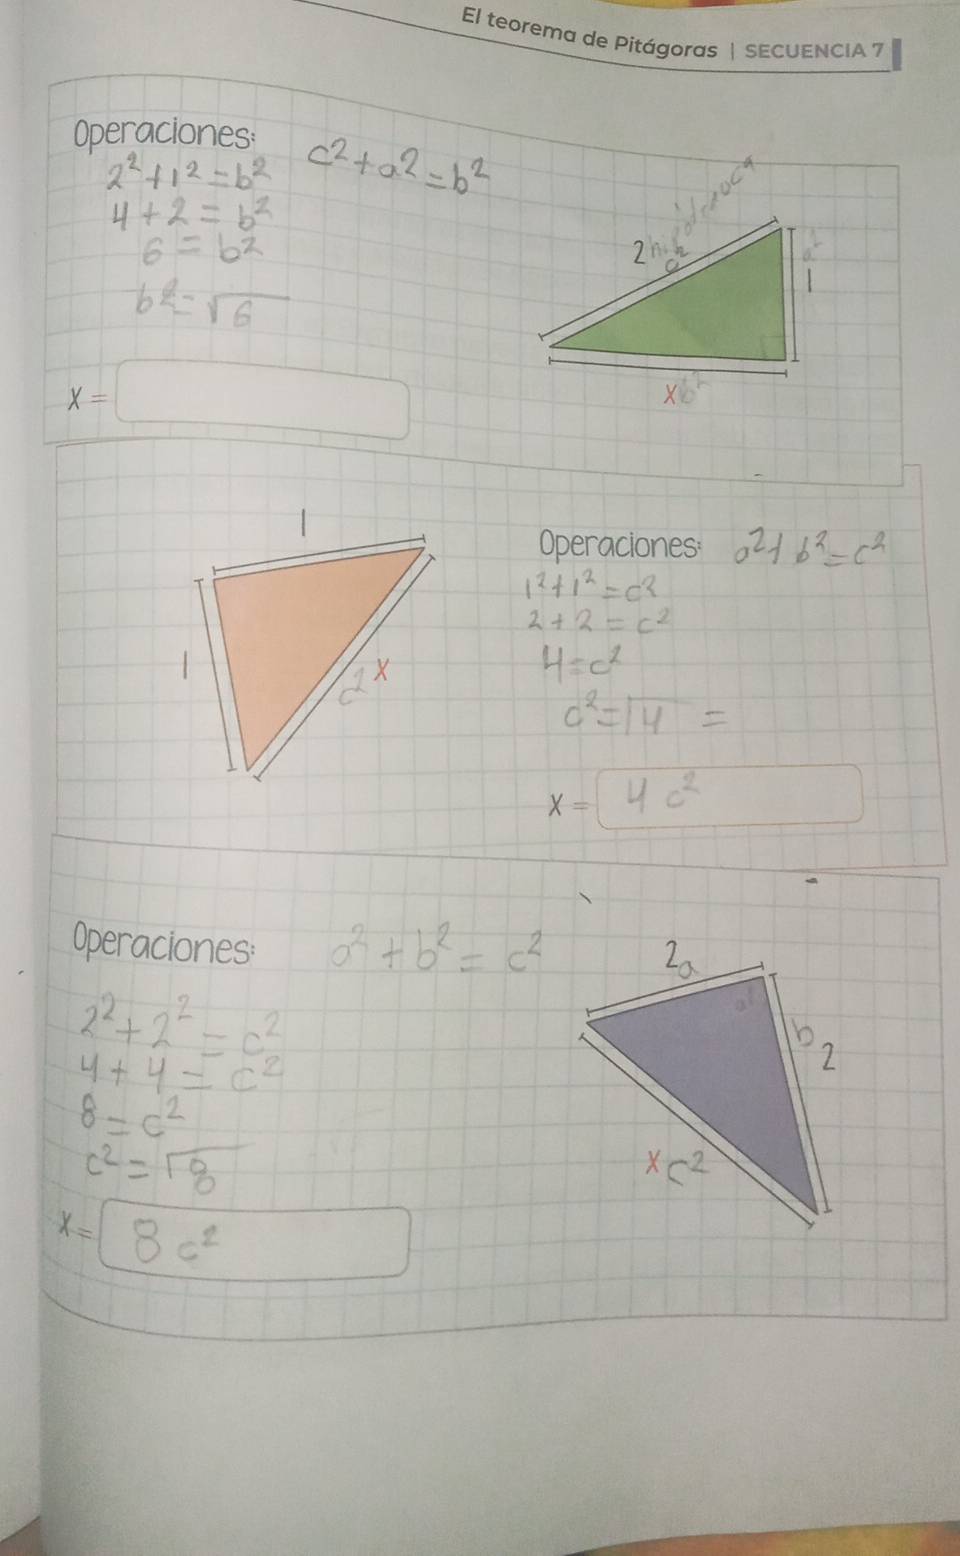 El teorema de Pitágoras | SECUENCIA 7
Operaciones: c²+a²=b²
2²+1²=b²
4+2=b²
6=b²
b²=√6
x=
2
c
1
x b²
1
1
x
c²
Operaciones: a²+b²=c²
1²+1²=c²
2+2=c²
4=c²
c²=√4 =
x= 4c²
Operaciones: a²+b²=c²
2²+2²=c²
4+4=c²
8=c²
c²=√8
x= 8c²
2a
b
2
x c²